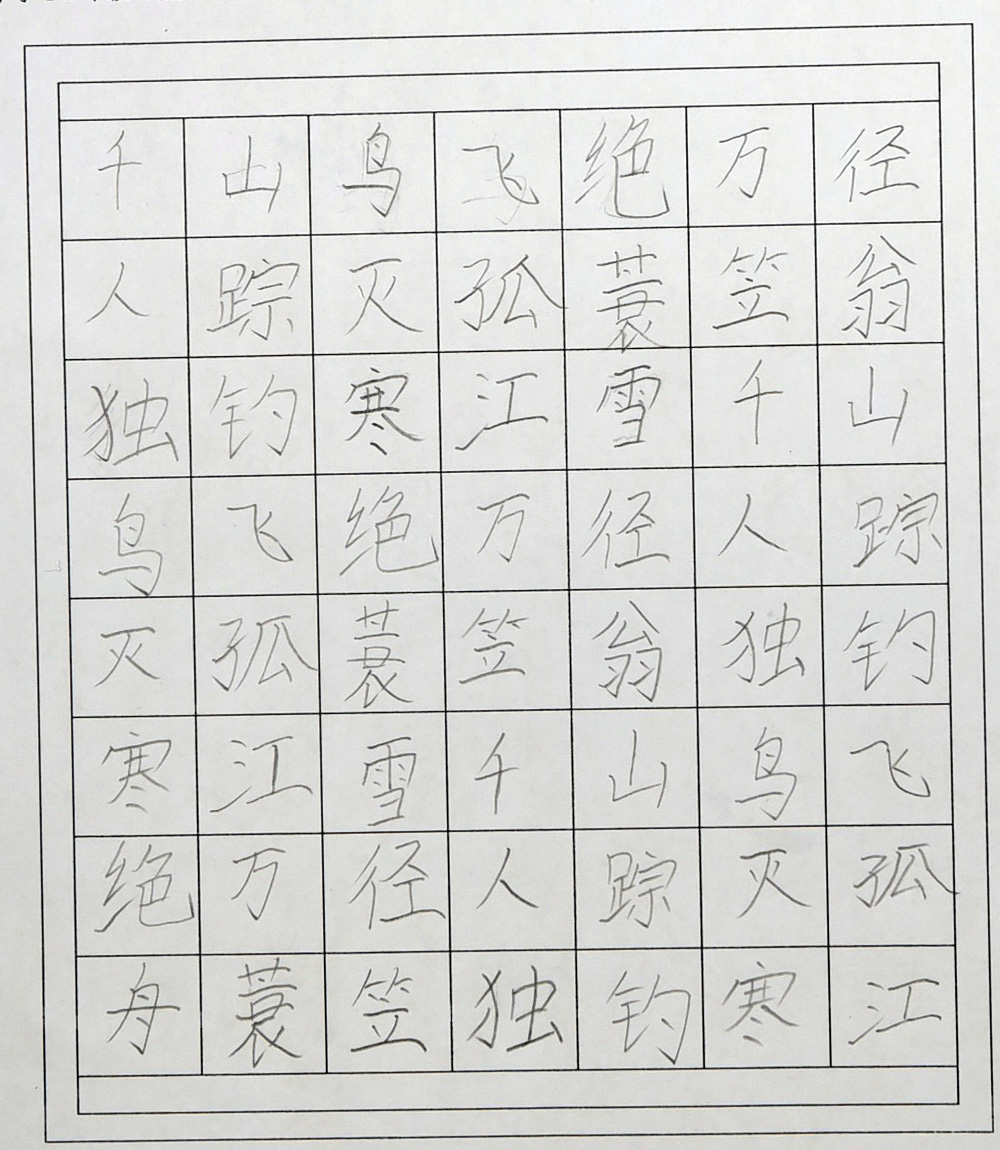 千山鸟飞绝万径
人踪灭孤蓑笠翁
独钓寒江雪千山
鸟飞绝万径人踪
灭孤蓑笠翁独钓
寒江雪千山鸟飞
绝万径人踪灭孤
舟蓑笠独钓寒江